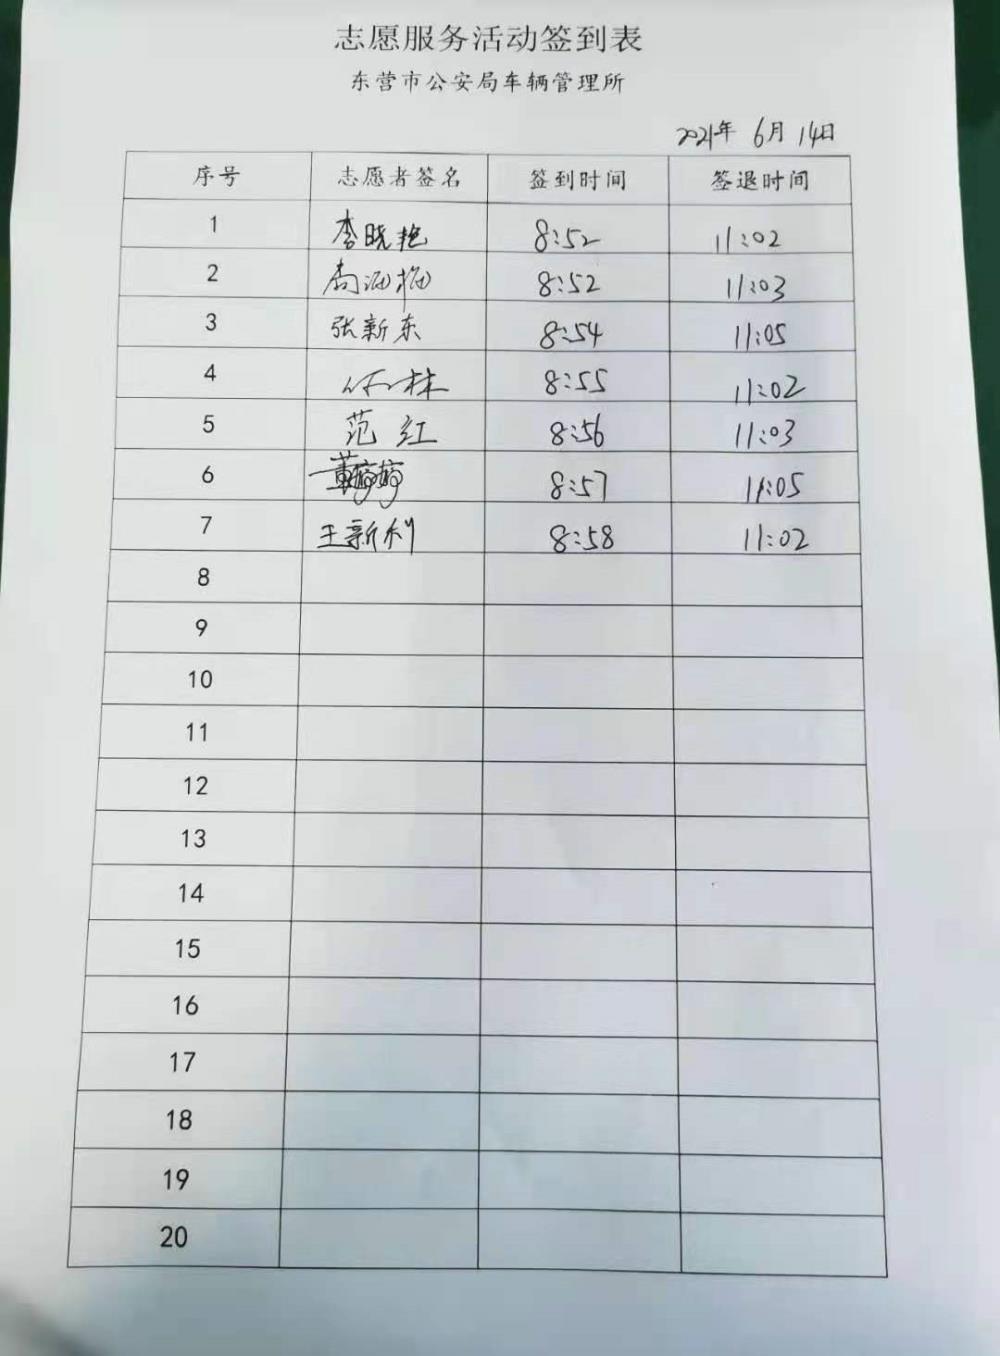 志愿服务活动签到表
东营市公安局车辆管理所
2021年 6月 14日
序号 志愿者签名 签到时间 签退时间
1 李晓艳 8:52 11:02
2 8:52 11:03
3 张新东 8:54 11:05
4 8:55 11:02
5 范红 8:56 11:03
6 董婷婷 8:57 11:05
7 王新利 8:58 11:02
8
9
10
11
12
13
14
15
16
17
18
19
20